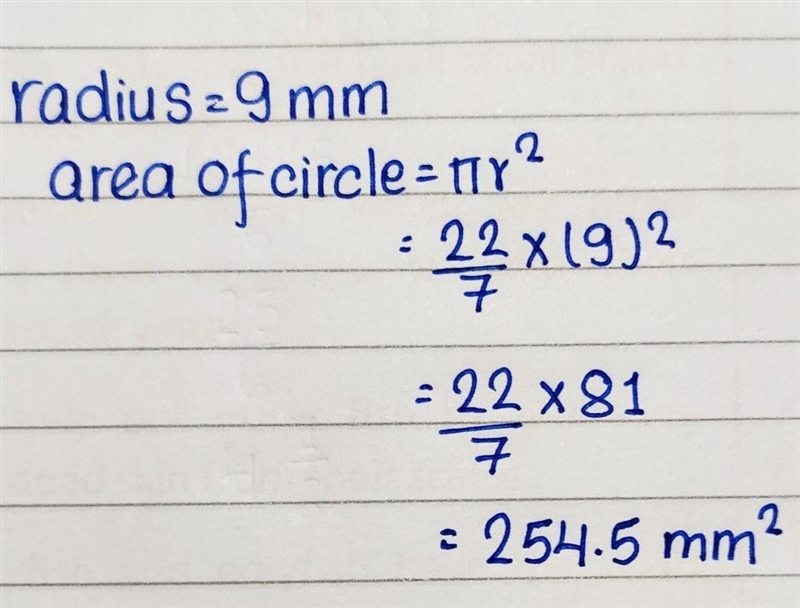 radius = 9 mm
area of circle = πr²
= 22/7 × (9)²
= 22/7 × 81
= 254.5 mm²